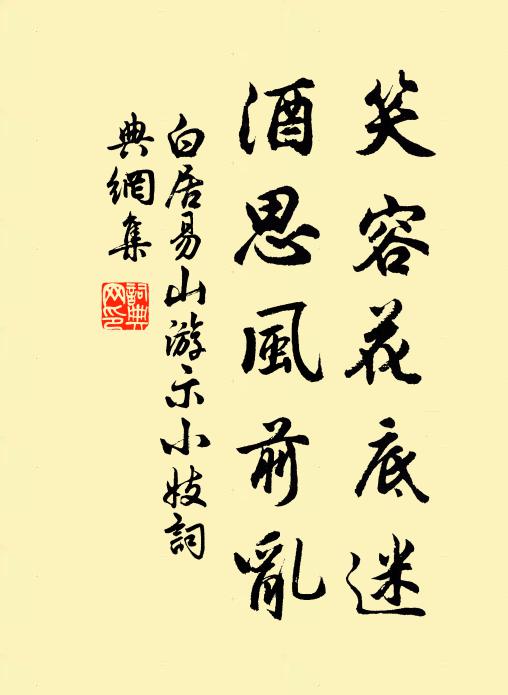 笑容花底迷
酒思風前亂
白居易山游示小妓詞
典網集
詞典
网印